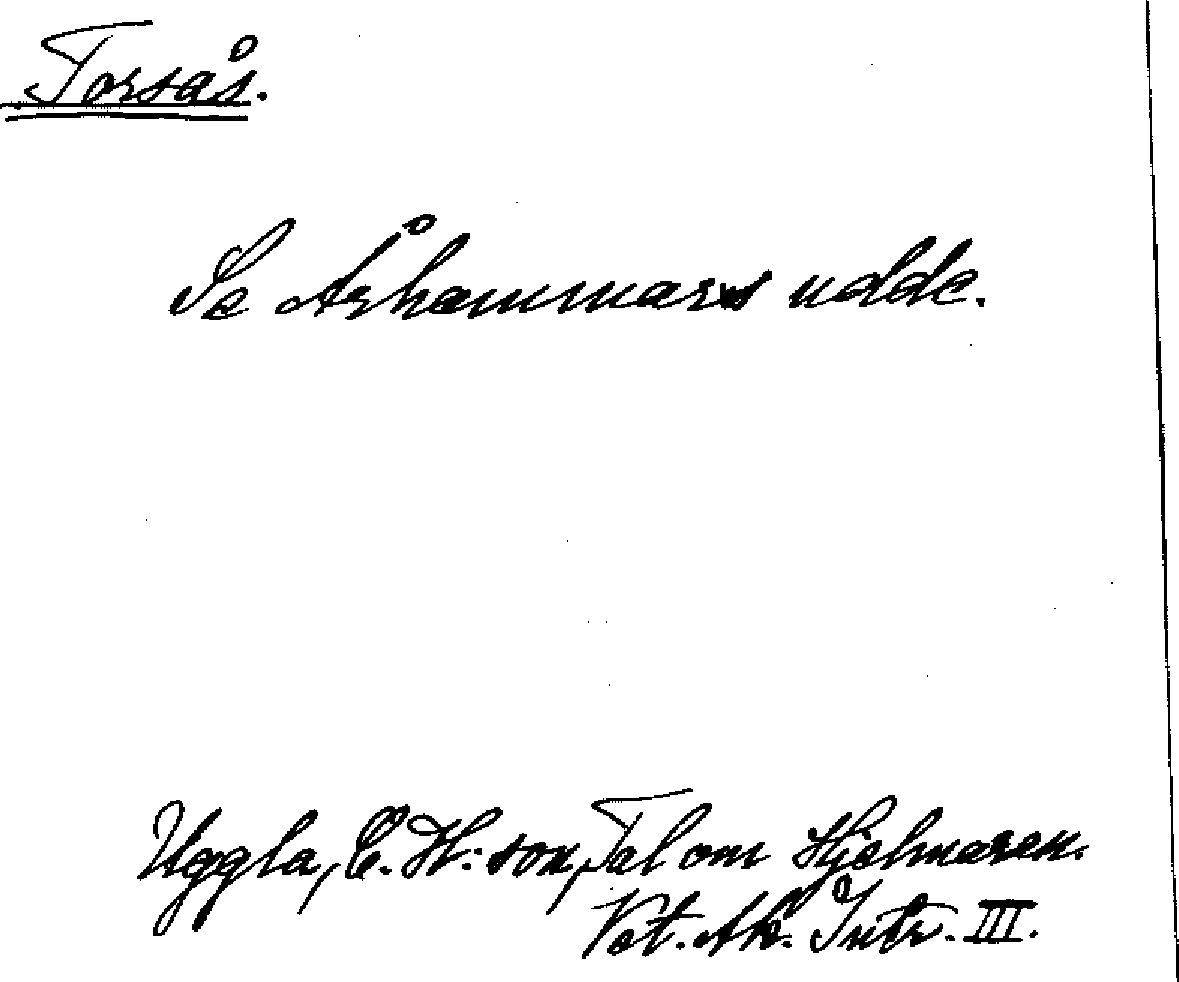 Torsås.
Se Århammars udde.
Uggla, C. H:son, Tal om Hjelmaren.
Vet. Ak. Intr. III.